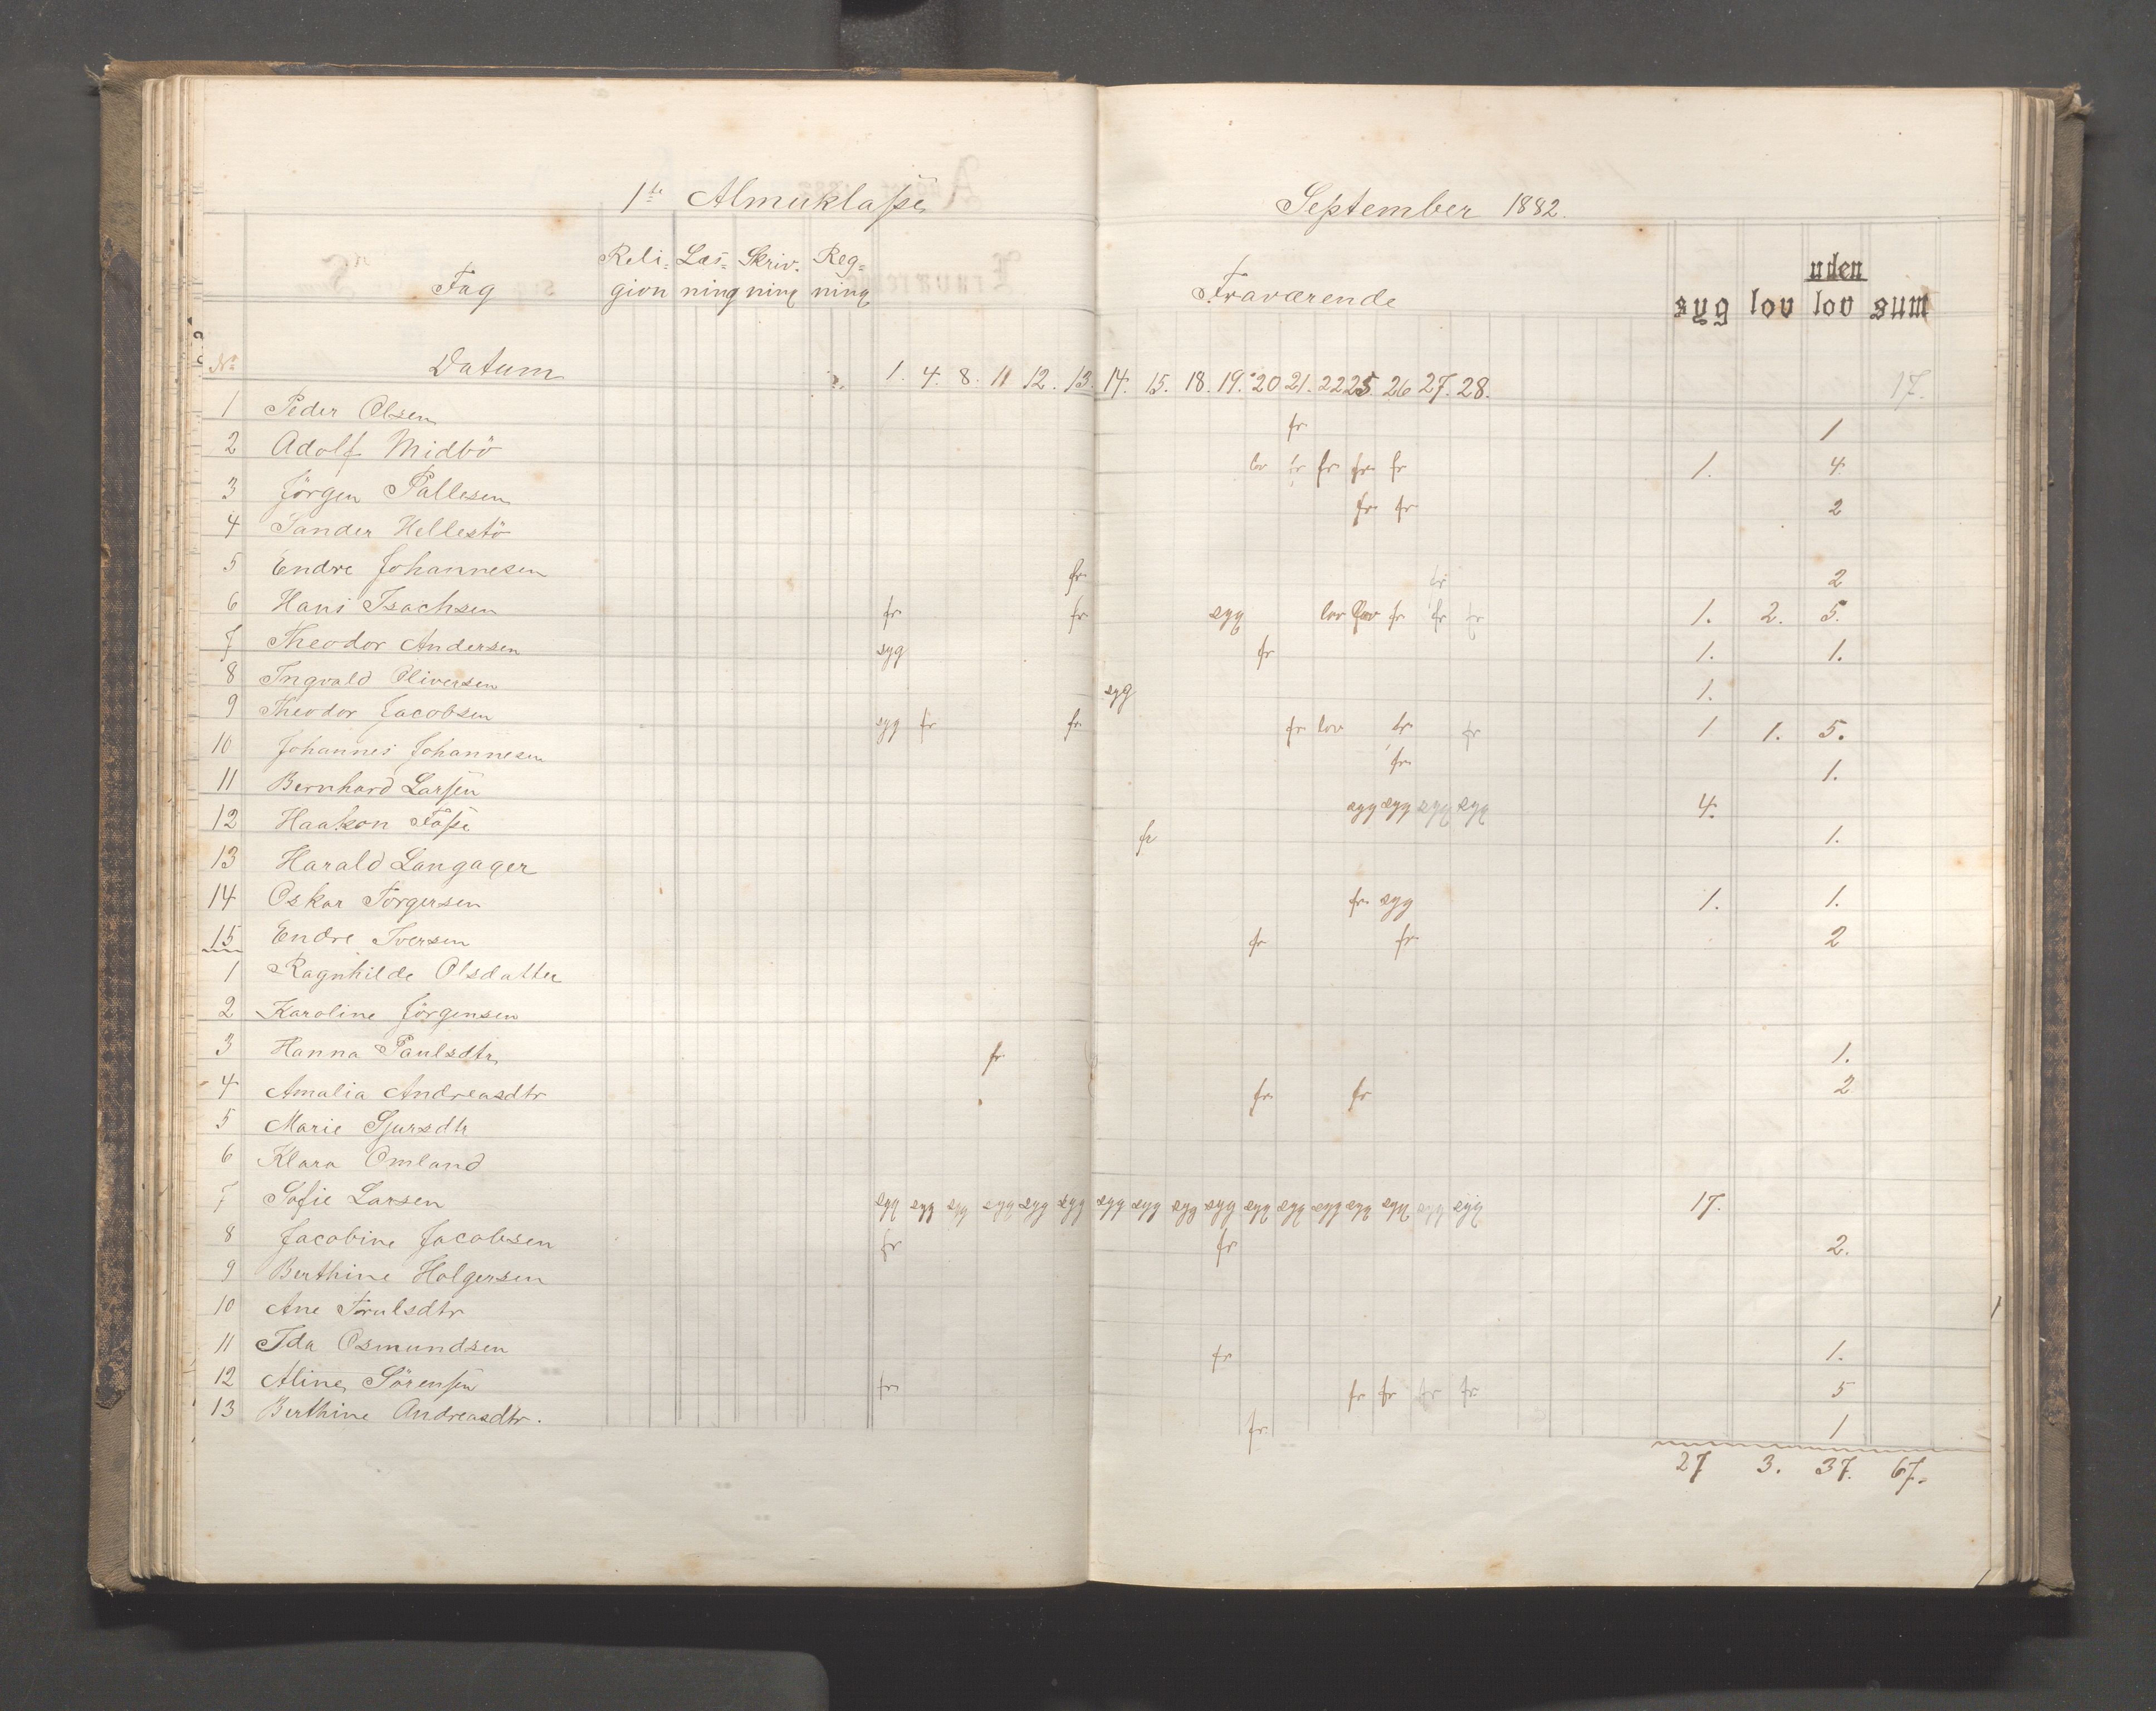 1te Almuklasse
September 1882.
Fag Reli= Læs= Skriv. Reg=
gion ning ning ning
Fraværende
syg lov uden lov sum
No Datum 1. 4. 8. 11 12. 13. 14. 15. 18. 19. 20. 21. 22 25. 26 27. 28. 17.
1 Peder Olsen fr 1
2 Adolf Midbö lov fr fr fr fr 1. 4.
3 Jörgen Pallesen fr fr 2
4 Sander Hellestö
5 Endre Johannesen fr fr 2
6 Hans Isachsen fr fr syg lov lov fr fr fr 1. 2. 5.
7 Theodor Andersen syg fr 1. 1.
8 Ingvald Oliversen syg 1.
9 Theodor Jacobsen syg fr fr fr lov fr fr 1 1. 5.
10 Johannes Johannesen fr 1.
11 Bernhard Larsen syg syg syg syg 4.
12 Haakon fr 1.
13 Harald Langager
14 Oskar Torgersen fr syg 1. 1.
15 Endre Iversen fr fr 2
1 Ragnhilde Olsdatter
2 Karoline Jörgensen
3 Hanna Paulsdtr fr 1.
4 Amalia Andreasdtr fr fr 2
5 Marie Sjursdtr
6 Klara Omland
7 Sofie Larsen syg syg syg syg syg syg syg syg syg syg syg syg syg syg syg syg syg 17.
8 Jacobine Jacobsen fr fr 2.
9 Berthine Holgersen
10 Ane Torulsdtr
11 Ida Osmundsen fr 1.
12 Aline Sörensen fr fr fr fr fr 5
13 Berthine Andreasdtr. fr 1
27 3. 37. 67.